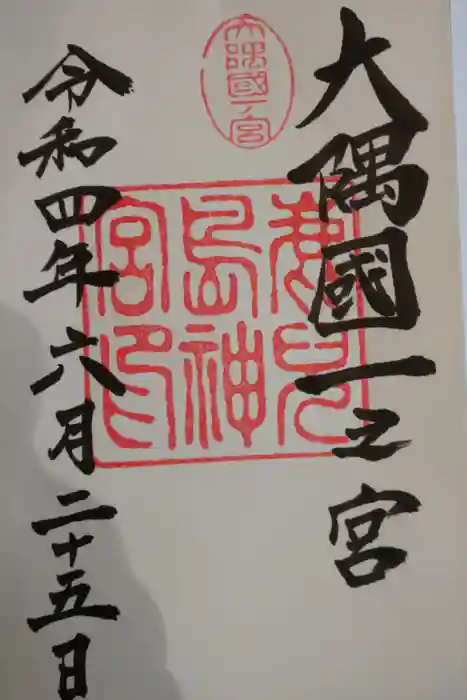 大隅國一之宮
大隅國一宮
鹿兒
島神
宮印
令和四年六月二十五日